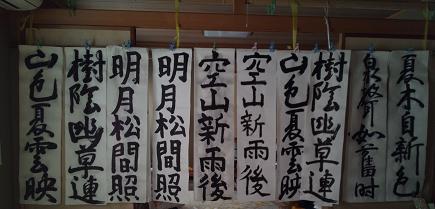 夏木自新色
泉聲如舊時
樹陰幽草連
山色夏雲映
空山新雨後
空山新雨後
明月松間照
明月松間照
樹陰幽草連
山色夏雲映